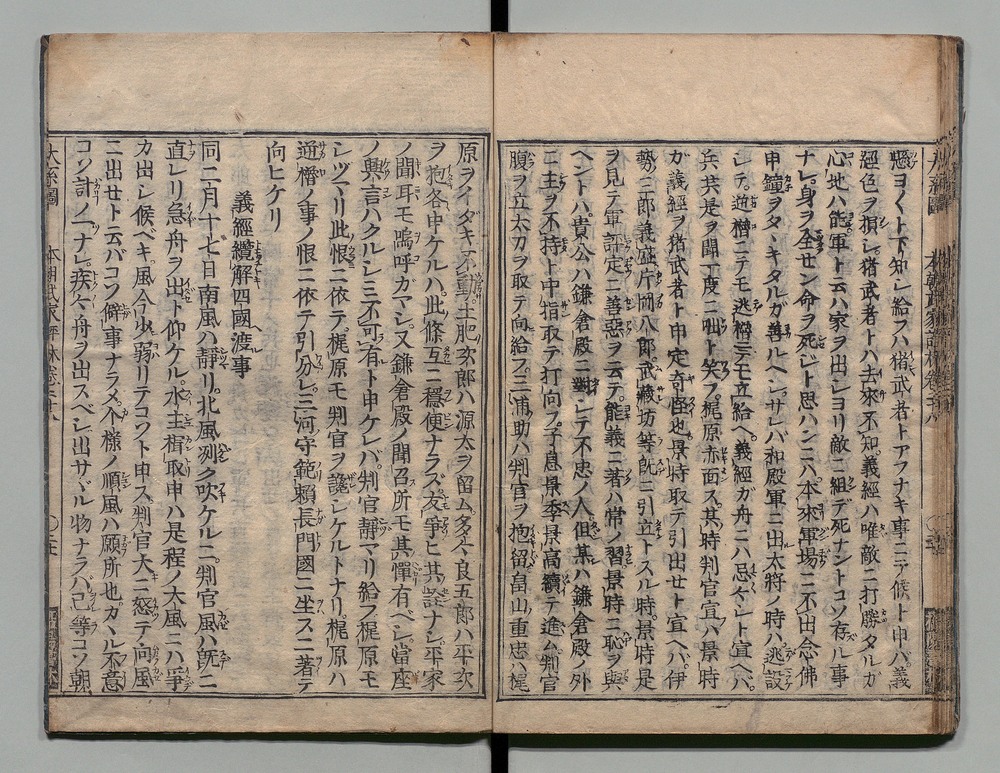 ヨクト下知シ給フハ猪武者トアフナキ事ニテ候ト申バ義
經色ヲ損シ猪武者トハ去來不知義經ハ唯敵ニ打勝タルガ
心地ハ能軍ト云ハ家ヲ出シヨリ敵ニ組デ死ナントコソ存ル事
ナレ身ヲ全セン命ヲ死シト思ハンニハ本來軍場ニ不出念佛
申鐘ヲタヽキタルガ善ルヘシサレバ和殿軍ニ出太將ノ時ハ逃設
シテ逆櫓ニテモ逃櫓ニモ立給ヘ義經ガ舟ニハ忌々シト宣ヘバ
兵共是ヲ聞一度ニ咄ト笑フ梶原赤面ス其時判官宣ハ景時
ガ義經ヲ猪武者ト申定奇怪也景時取テ引出セト宣ヘバ伊
勢三郎義盛片岡八郎武藏坊等既ニ引立トスル時景時是
ヲ見テ軍ノ評定ニ善惡ヲ云テ能義ニ著ハ常ノ習景時ニ恥ヲ與
ヘントハ貴公ハ鎌倉殿ニ對シテ不忠ノ人但某ハ鎌倉殿ノ外
ニ主ヲ不持ト中指取テ打向フ子息景季景高續テ進ム判官
腹ヲ立太刀ヲ取テ向給フ三浦助ハ判官ヲ抱留畠山重忠ハ梶
原ヲイダキテ不動土肥次郎ハ源太ヲ留ム多々良五郎ハ平次
ヲ抱各申ケルハ此條互ニ穩便ナラズ友爭ヒ其詮ナシ平家
ノ聞耳モ嗚呼カマシ又鎌倉殿ノ聞召所モ其憚有ベシ當座
ノ興言ハクルシミ不可有ト申ケレバ判官靜マリ給フ梶原モ
シヅマリ此恨ニ依テ梶原モ判官ヲ讒シケルトナリ梶原ハ
逆櫓ノ事ノ恨ニ依テ引分レ三河守範賴長門國ニ坐スニ著テ
向ヒケリ
義經纜解四國渡事
同二月十七日南風ハ靜リ北風烈ク吹ケルニ判官風ハ既ニ
直レリ急舟ヲ出ト仰ケル水主楫取申ハ是程ノ大風ニハ爭
カ出シ候ベキ風今少弱リテコソト申ス判官大ニ怒テ向風
ニ出セト云バコソ僻事ナラメ个樣ノ順風ハ願所也カヽル不意
コソ計ノ一ナレ疾々舟ヲ出スベシ出サヾル物ナラバ己等コソ朝